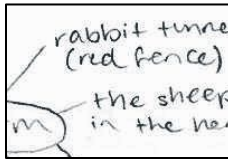 rabbit tunne
(red fence)
the sheep
m in the hea